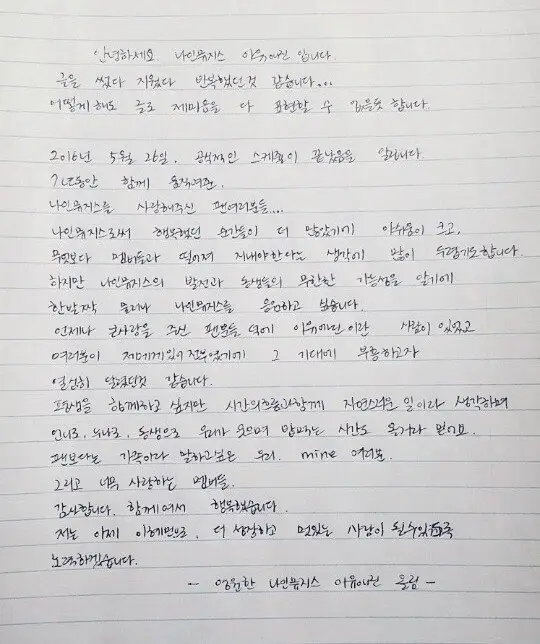 안녕하세요. 나인뮤지스 이유애린 입니다.
글을 썼다 지웠다 반복했던것 같습니다...
어떻게 해도 글로 제마음을 다 표현할 수 없을듯 합니다.
2016년 5월 26일. 공식적인 스케줄이 끝났음을 알립니다
7년동안 함께 움직여준.
나인뮤지스를 사랑해주신 팬여러분들...
나인뮤지스로써 행복했던 순간들이 더 많았기에 아쉬움이 크고,
무엇보다 멤버들과 떨어져 지내야한다는 생각에 많이 두렵기도합니다.
하지만 나인뮤지스의 발전과 동생들의 무한한 가능성을 알기에
한발짝 물러나 나인뮤지스를 응원하고 싶습니다.
언제나 큰사랑을 주신 팬분들 덕에 이유애린 이란 사람이 있었고
여러분이 저에게있어 전부였기에 그 기대에 부응하고자
열심히 달렸던것 같습니다.
평생을 함께하고 싶지만 시간의흐름과함께 자연스러운 일이라 생각하며
언니로, 누나로, 동생으로 우리가 웃으며 마주하는 시간도 올거라 믿어요.
팬보다는 가족이라 말하고싶은 우리. mine 여러분.
그리고 너무 사랑하는 멤버들.
감사합니다. 함께여서 행복했습니다.
저는 이제 이혜민으로, 더 성장하고 멋있는 사람이 될수있도록
노력하겠습니다.
- 영원한 나인뮤지스 이유애린 올림 -